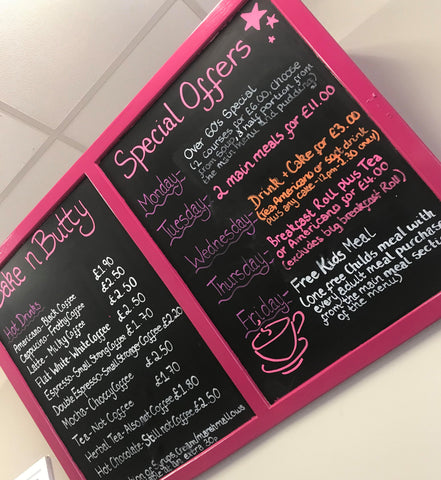 Special Offers
Monday- Over 60's Special
(2 courses for £6.00, choose
from soup, ½ half portion from
the main menu and pudding)
Tuesday- 2 main meals for £11.00
Wednesday- Drink + Cake for £3.00
(Tea, Americano or 8oz drink
plus any cake 12pm-1.30 only)
Thursday- Breakfast Roll plus Tea
or Americano for £4.00
(excludes big breakfast Roll)
Friday- Free Kids Meal
(one free childs meal with
every adult meal purchase
from the main meal sect
of the menu)
ake n Butty
Hot Drinks
Americano-Black Coffee £1.90
Cappucino-Frothy Coffee £2.50
Latte-Milky Coffee £2.50
Flat White-White Coffee £2.50
Espresso-Small Strong Coffee £1.30
Double Espresso-Small Stronger Coffee £2.20
Mocha-Choccy Coffee £2.50
Tea-Not Coffee £1.70
Herbal Tea-Also not Coffee £1.80
Hot Chocolate-Still not Coffee £2.50
of Syrups, Cream/marshmallows
every 30p